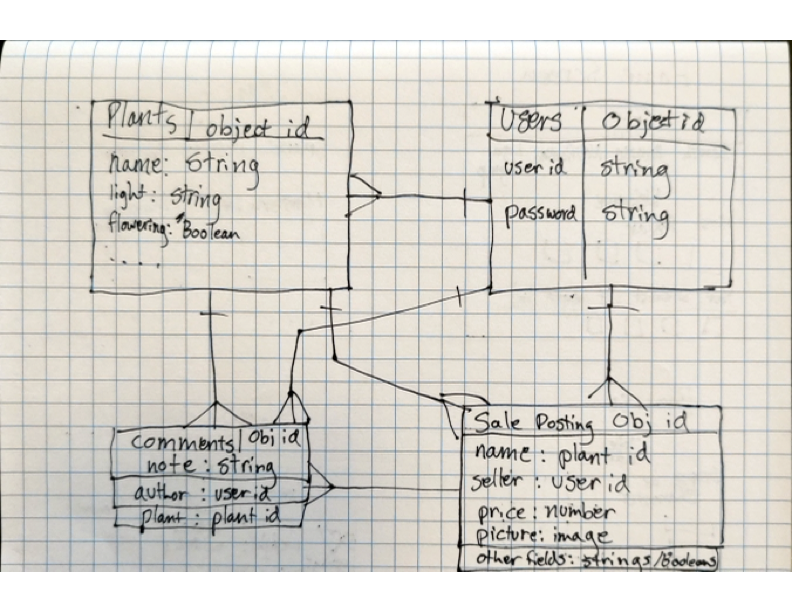 Plants | object id
name: string
light: string
flowering: Boolean
. . . .
Users | Object id
user id | string
password | string
comments | Obj id
note: string
author: user id
plant: plant id
Sale Posting Obj id
name: plant id
seller: user id
price: number
picture: image
other fields: strings/Booleans